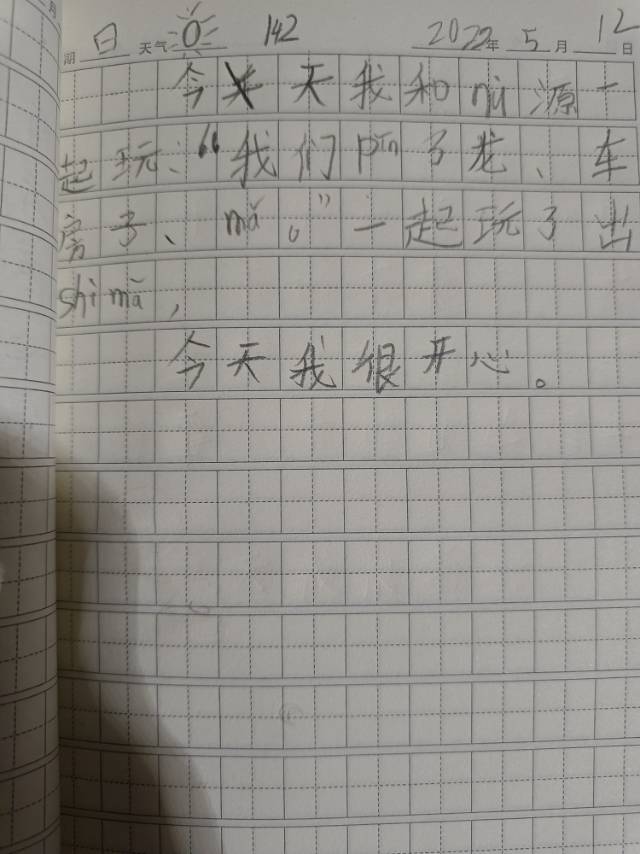 月
期 日 天气 142 2022年 5月 12日
今天我和nǚ源一
起玩、“我们pīn了龙、车
房子、mǎ。”一起玩了出
shì mǎ，
今天我很开心。